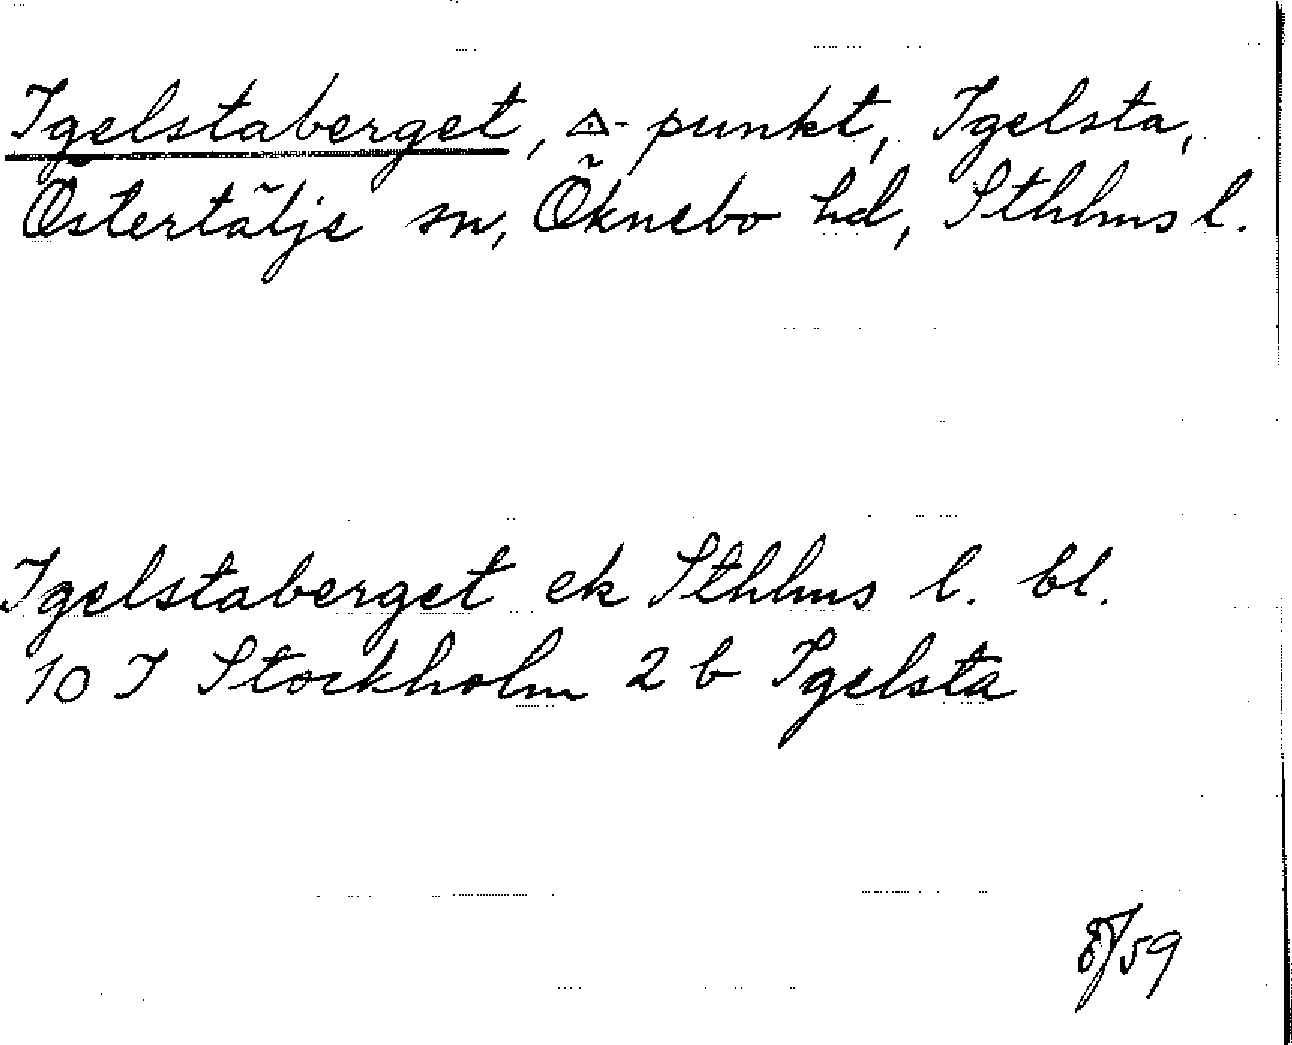 Igelstaberget, △-punkt, Igelsta,
Östertälje sn, Öknebo hd, Sthlms l.
Igelstaberget ek Sthlms l. bl.
10 I Stockholm 2 b Igelsta
/59